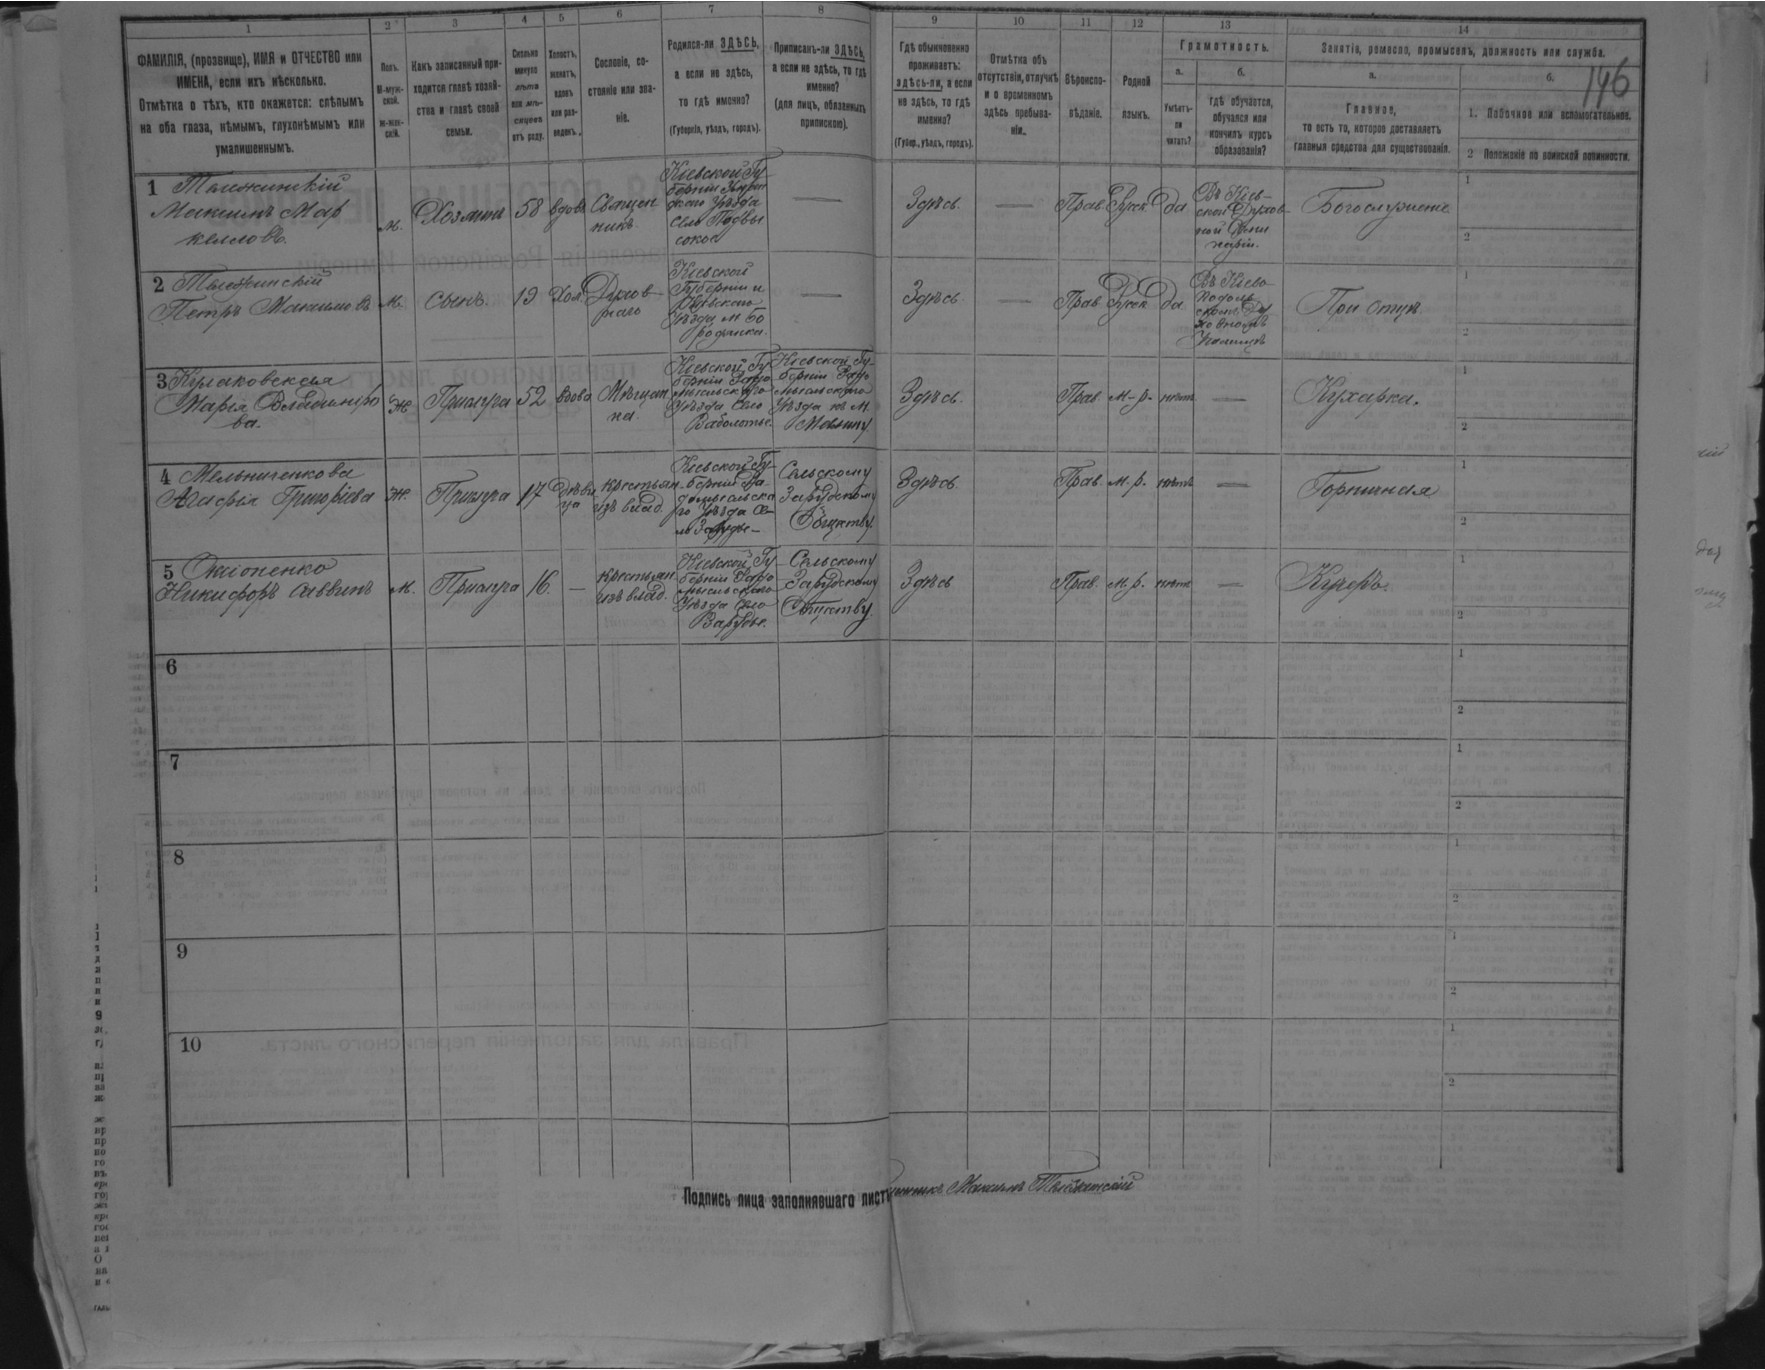 1 2 3 4 5 6 7 8 9 10 11 12 13 14
146
ФАМИЛІЯ, (прозвище), ИМЯ и ОТЧЕСТВО или
ИМЕНА, если ихъ нѣсколько.
Отмѣтка о тѣхъ, кто окажется: слѣпымъ
на оба глаза, нѣмымъ, глухонѣмымъ или
умалишеннымъ.
Полъ.
М-муж-
ской.
Ж-жен-
скій.
Какъ записанный при-
ходится главѣ хозяй-
ства и главѣ своей
семьи.
Сколько
минуло
лѣтъ
или мѣ-
сяцевъ
отъ роду.
Холостъ,
женатъ,
вдовъ
или раз-
веденъ.
Сословіе, со-
стояніе или зва-
ніе.
Родился-ли ЗДѢСЬ,
а если не здѣсь,
то гдѣ именно?
(Губернія, уѣздъ, городъ).
Приписанъ-ли ЗДѢСЬ,
а если не здѣсь, то гдѣ
именно?
(для лицъ, обязанныхъ
припискою).
Гдѣ обыкновенно
проживаетъ:
здѣсь-ли, а если
не здѣсь, то гдѣ
именно?
(Губер., уѣздъ, городъ).
Отмѣтка объ
отсутствіи, отлучкѣ
и о временномъ
здѣсь пребыва-
ніи.
Вѣроиспо-
вѣданіе.
Родной
языкъ.
Грамотность.
а.
Умѣетъ-
ли
читать?
б.
гдѣ обучается,
обучался или
кончилъ курсъ
образованія?
Занятіе, ремесло, промыселъ, должность или служба.
а.
Главное,
то есть то, которое доставляетъ
главныя средства для существованія.
б.
1. Побочное или вспомогательное.
2 Положеніе по воинской повинности.
1
Максимъ Мар
келловъ
м.
Хозяинъ
58
вдовъ
Священ
никъ
Кіевской Гу-
берніи
Уѣзда
Село Подвы
сокое
—
Здѣсь
—
Прав.
Русск
Да
Въ Кіев-
ской Духов-
ной Семи
наріи.
1
2
2
Петръ Максимовъ
м.
сынъ.
19
Хол.
Духов-
наго
Кіевской
Губерніи и
Кіевскаго
Уѣзда м Бо
родянка.
—
Здѣсь
—
Прав
Русск
Да
Въ Кіево-
Подоль
скомъ Ду
ховномъ
Училищѣ
При отцѣ.
1
2
3 Кулаковская
Марія Владимиро
ва.
Ж.
Прислуга
52
вдова
Мѣщан
ка.
Кіевской Гу-
берніи Радо
мысльскаго
Уѣзда Село
Заболотье.
Кіевской Гу-
берніи Радо
мысльскаго
Уѣзда къ м.
Малину
Здѣсь.
Прав.
м-р.
нѣтъ
—
Кухарка.
1
2
4 Мельниченкова
Агафія Григоріева
Ж.
Прислуга
17
дѣви
ца
крестьян.
изъ влад.
Кіевской Гу-
берніи Ра
домысльска
го Уѣзда Се-
ло Зарудье-
Сельскому
Зарудскому
Обществу
Здѣсь
Прав.
м.р.
нѣтъ
—
Горничная
1
2
5
Никифоръ Саввинъ
м.
Прислуга
16.
—
крестьян
изъ влад.
Кіевской Гу-
берніи Радо
мысльскаго
Уѣзда Село
Зарудье.
Сельскому
Зарудскому
Обществу.
Здѣсь
Прав.
м.р.
нѣтъ
—
Кучеръ.
1
2
6
1
2
7
1
2
8
1
2
9
1
2
10
1
2
Подпись лица заполнявшаго листъ
Максимъ